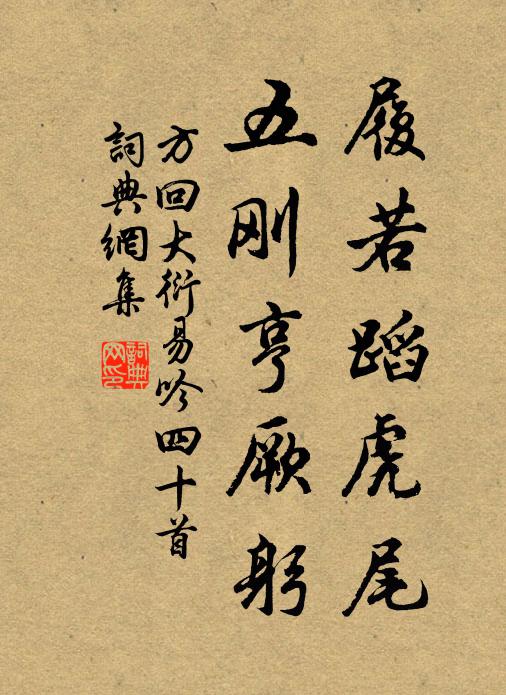 履若蹈虎尾
五刚亨厥躬
方回大衍易吟四十首
詞典網集
詞典网印